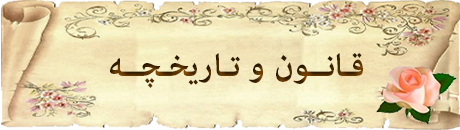 قانون و تاریخچه